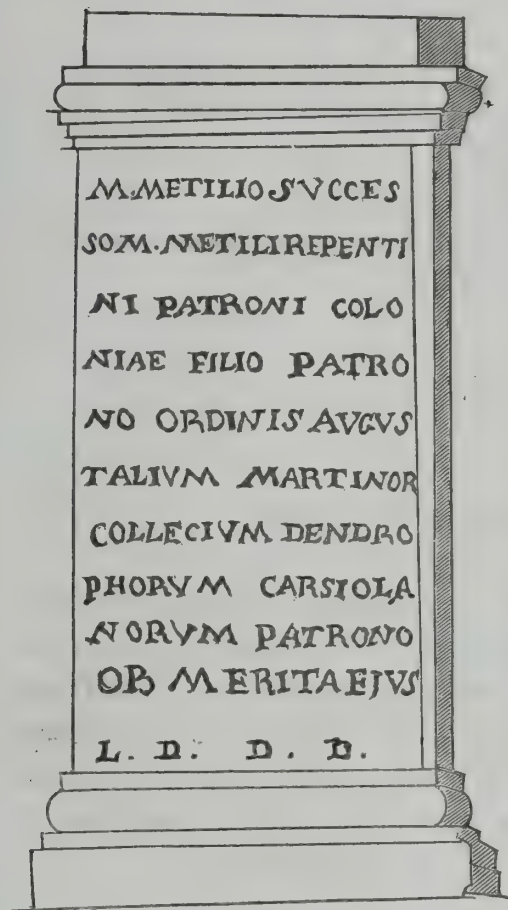 M.METILIO SVCCES
SO M.METILI REPENTI
NI PATRONI COLO
NIAE FILIO PATRO
NO ORDINIS AVGVS
TALIVM MARTINOR
COLLECIVM DENDRO
PHORVM CARSIOLA
NORVM PATRONO
OB MERITA EJVS
L. D. D. D.